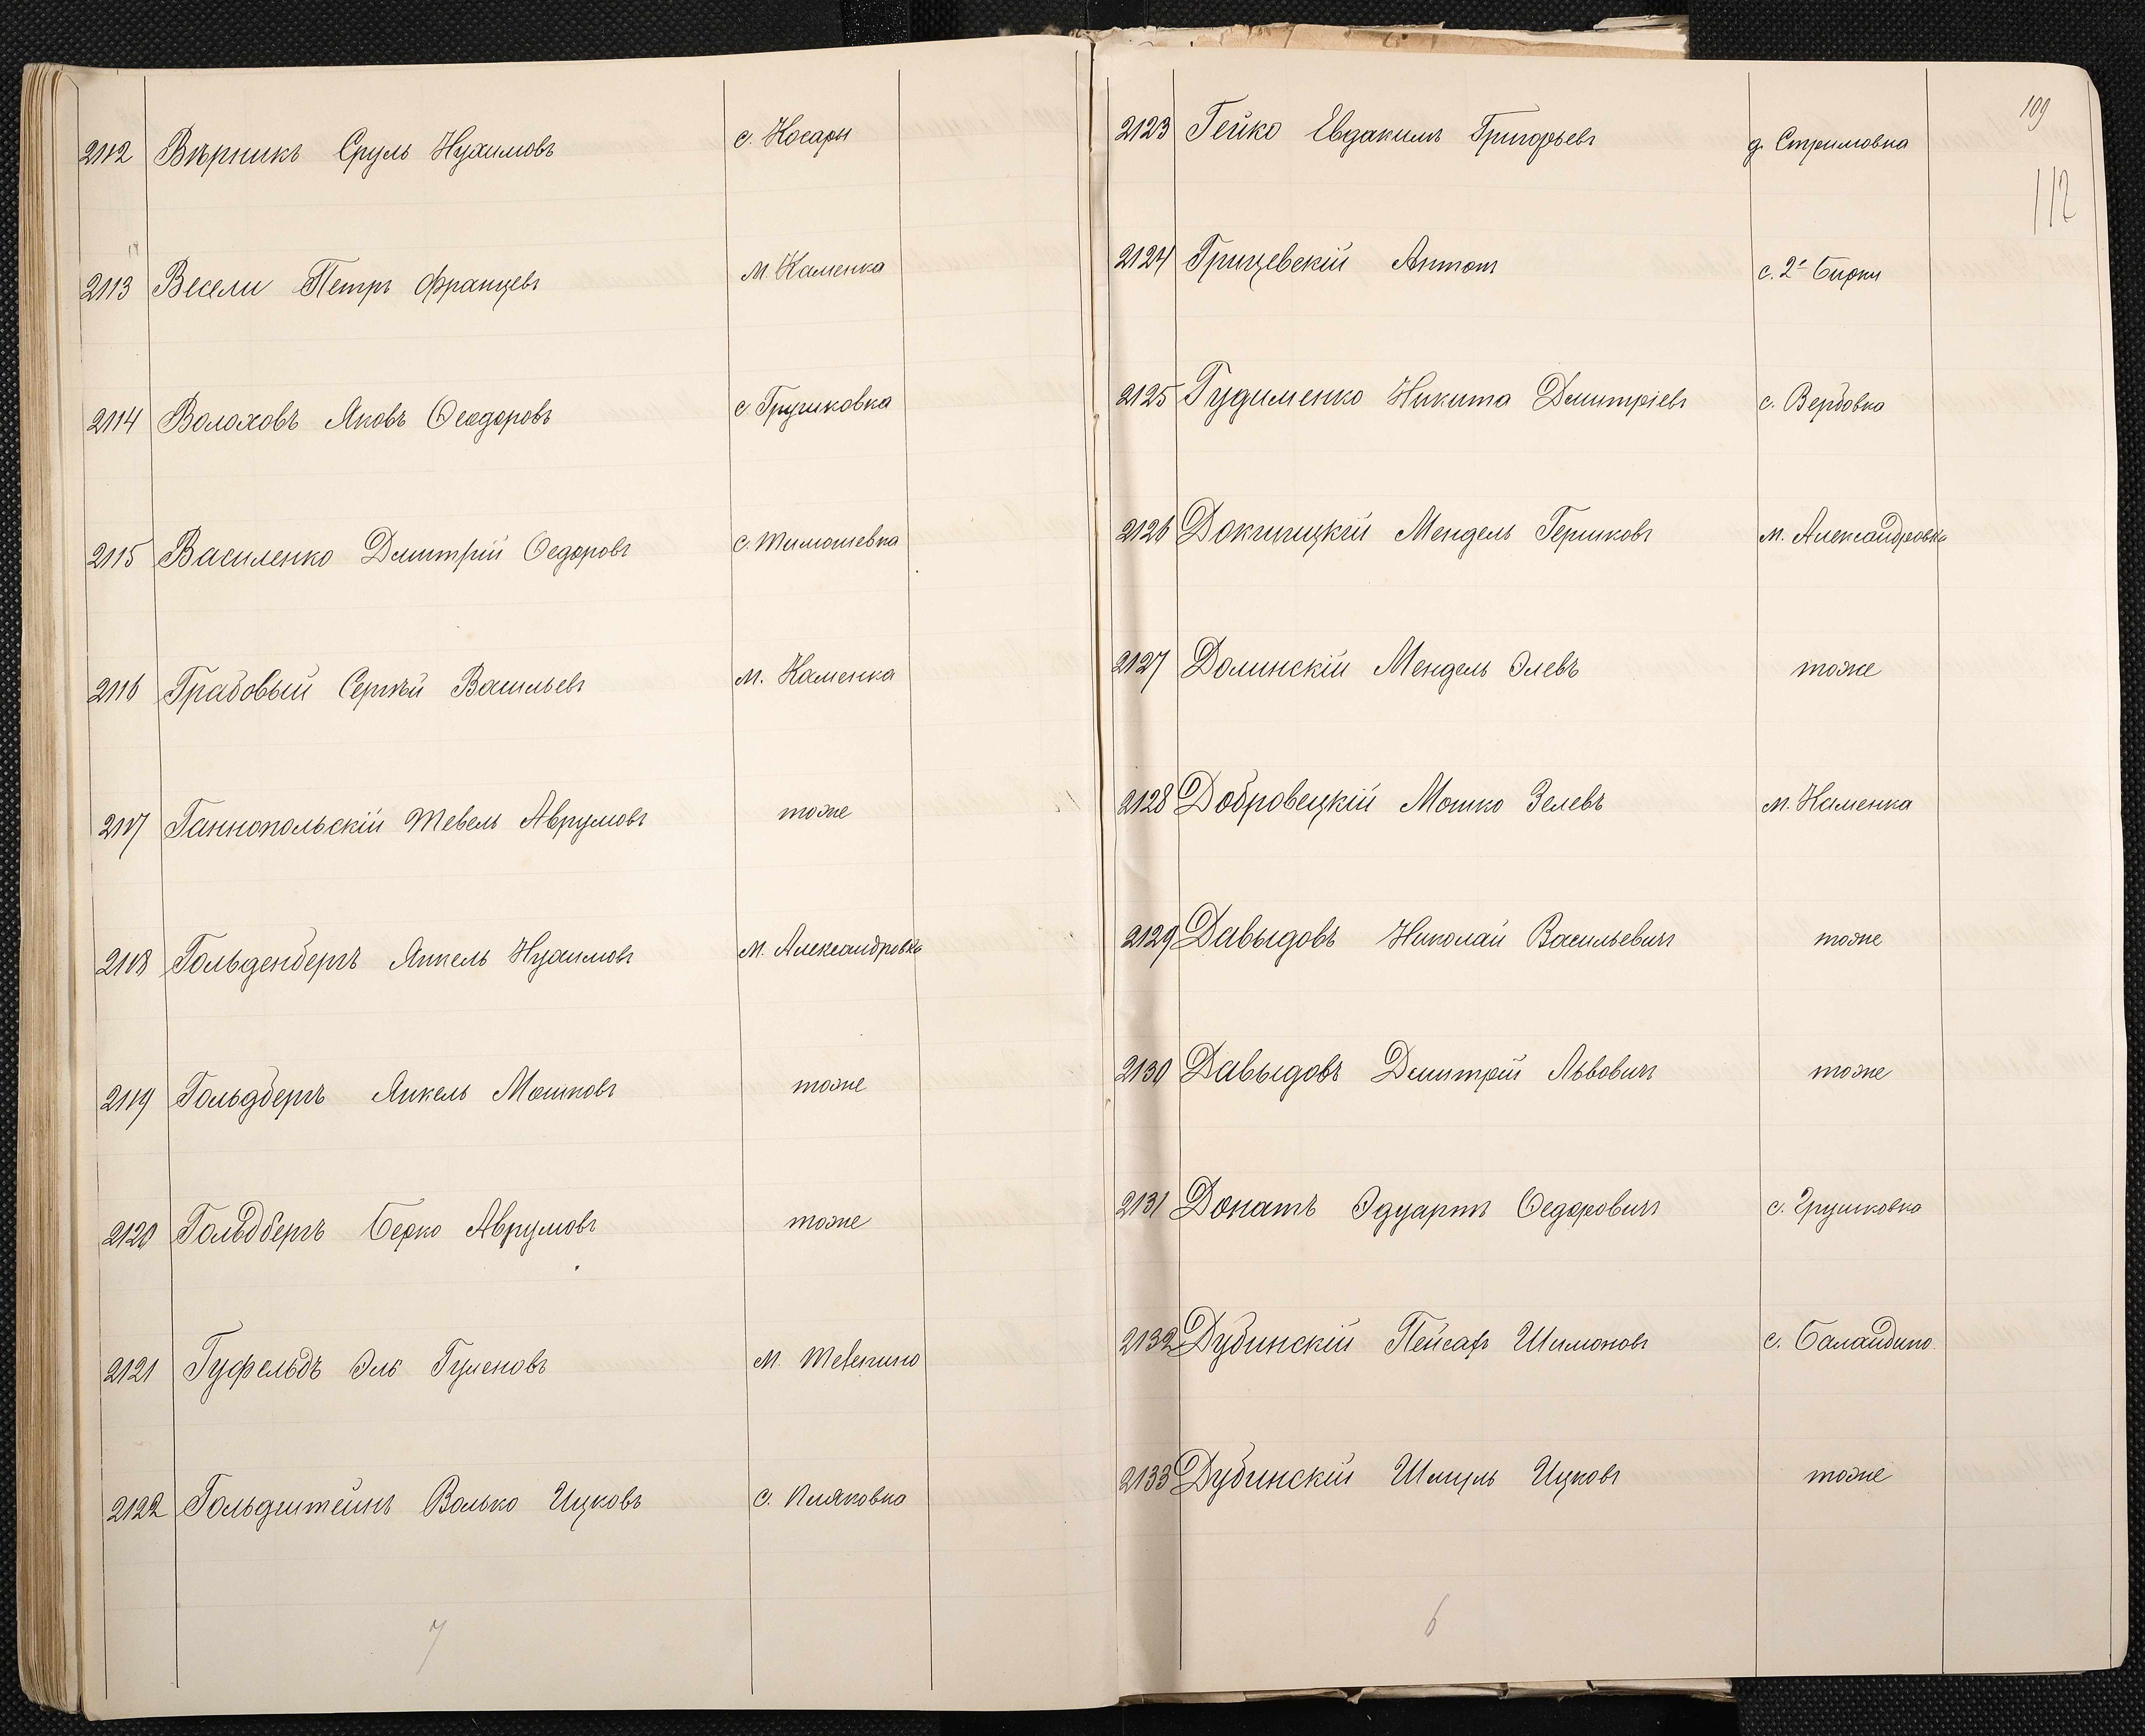 2112 Вѣрникъ Сруль Нухимовъ с. Косары
2113 Весели Петръ Францевъ м. Каменка
2114 Волоховъ Яковъ Ѳеодоровъ с. Грушковка
2115 Василенко Дмитрій Ѳедоровъ с. Тимошевка
2116 Грабовый Сергѣй Васильевъ м. Каменка
2117 Ганнопольскій Тевель Аврумовъ тоже
2118 Гольденбергъ Янкель Нухимовъ м. Александровка
2119 Гольдбергъ Янкель Мошковъ тоже
2120 Гольдбергъ Берко Аврумовъ тоже
2121 Гуфельдъ Эль м. Телепино
2122 Гольдштейнъ Волько Ицковъ с. Пляковка
7
109
112
2123 Гейко Евдакимъ Григорьевъ д. Стримовка
2124 Грицевскій Антонъ с. 2е Бирки
2125 Гудименко Никита Дмитріевъ с. Вербовка
2126 Докшицкій Мендель Гершковъ м. Александровка
2127 Долинскій Мендель Элевъ тоже
2128 Добровецкій Мошко Зелевъ м. Каменка
2129 Давыдовъ Николай Васильевичъ тоже
2130 Давыдовъ Дмитрій Львовичъ тоже
2131 Донатъ Эдуартъ Ѳедоровичъ с. Грушковка
2132 Дубинскій Пейсахъ Шимоновъ с. Баландино
2133 Дубинскій Шмуль Ицковъ тоже
6